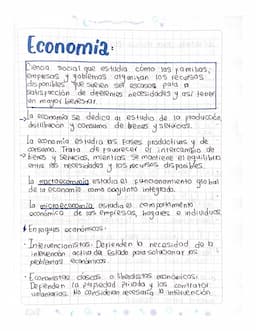 Economía:
Ciencia social que estudia cómo las familias,
empresas y gobiernos organizan los recursos
disponibles, que suelen ser escasos para la
satisfacción de diferentes necesidades y así tener
un mayor bienestar.
→La economía se dedica al estudio de la producción,
distribución y consumo de bienes y servicios.
La economía estudia las fases productivas y de
consumo. Trata de favorecer el intercambio de
→bienes y servicios, mientras se mantiene el equilibrio
entre las necesidades y los recursos disponibles.
La macroeconomía estudia el funcionamiento global
de la economía como conjunto integrado.
La microeconomía estudia el comportamiento
económico de las empresas, hogares e individuos.
Enfoques económicos:
· Intervencionistas: Defienden la necesidad de la
intervención activa del Estado para solucionar los
problemas económicos.
· Economistas clásicos o liberalistas económicos:
Defienden la propiedad privada y los contratos
voluntarios. No consideran necesaria la intervención